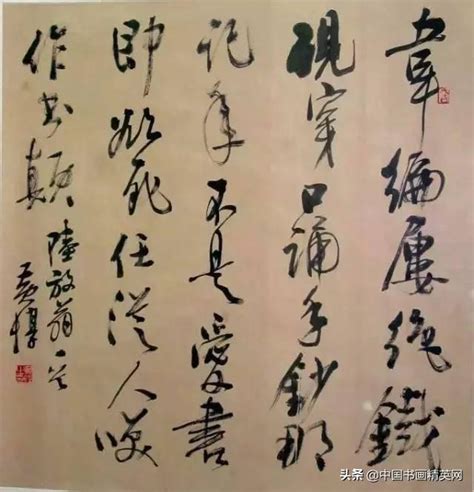 韋編屢絕鐵
硯穿口誦手鈔那
記年不是愛書
即欲死任從人咲
作书顛
陸放翁
黃惇
头条 @中国书画精英网